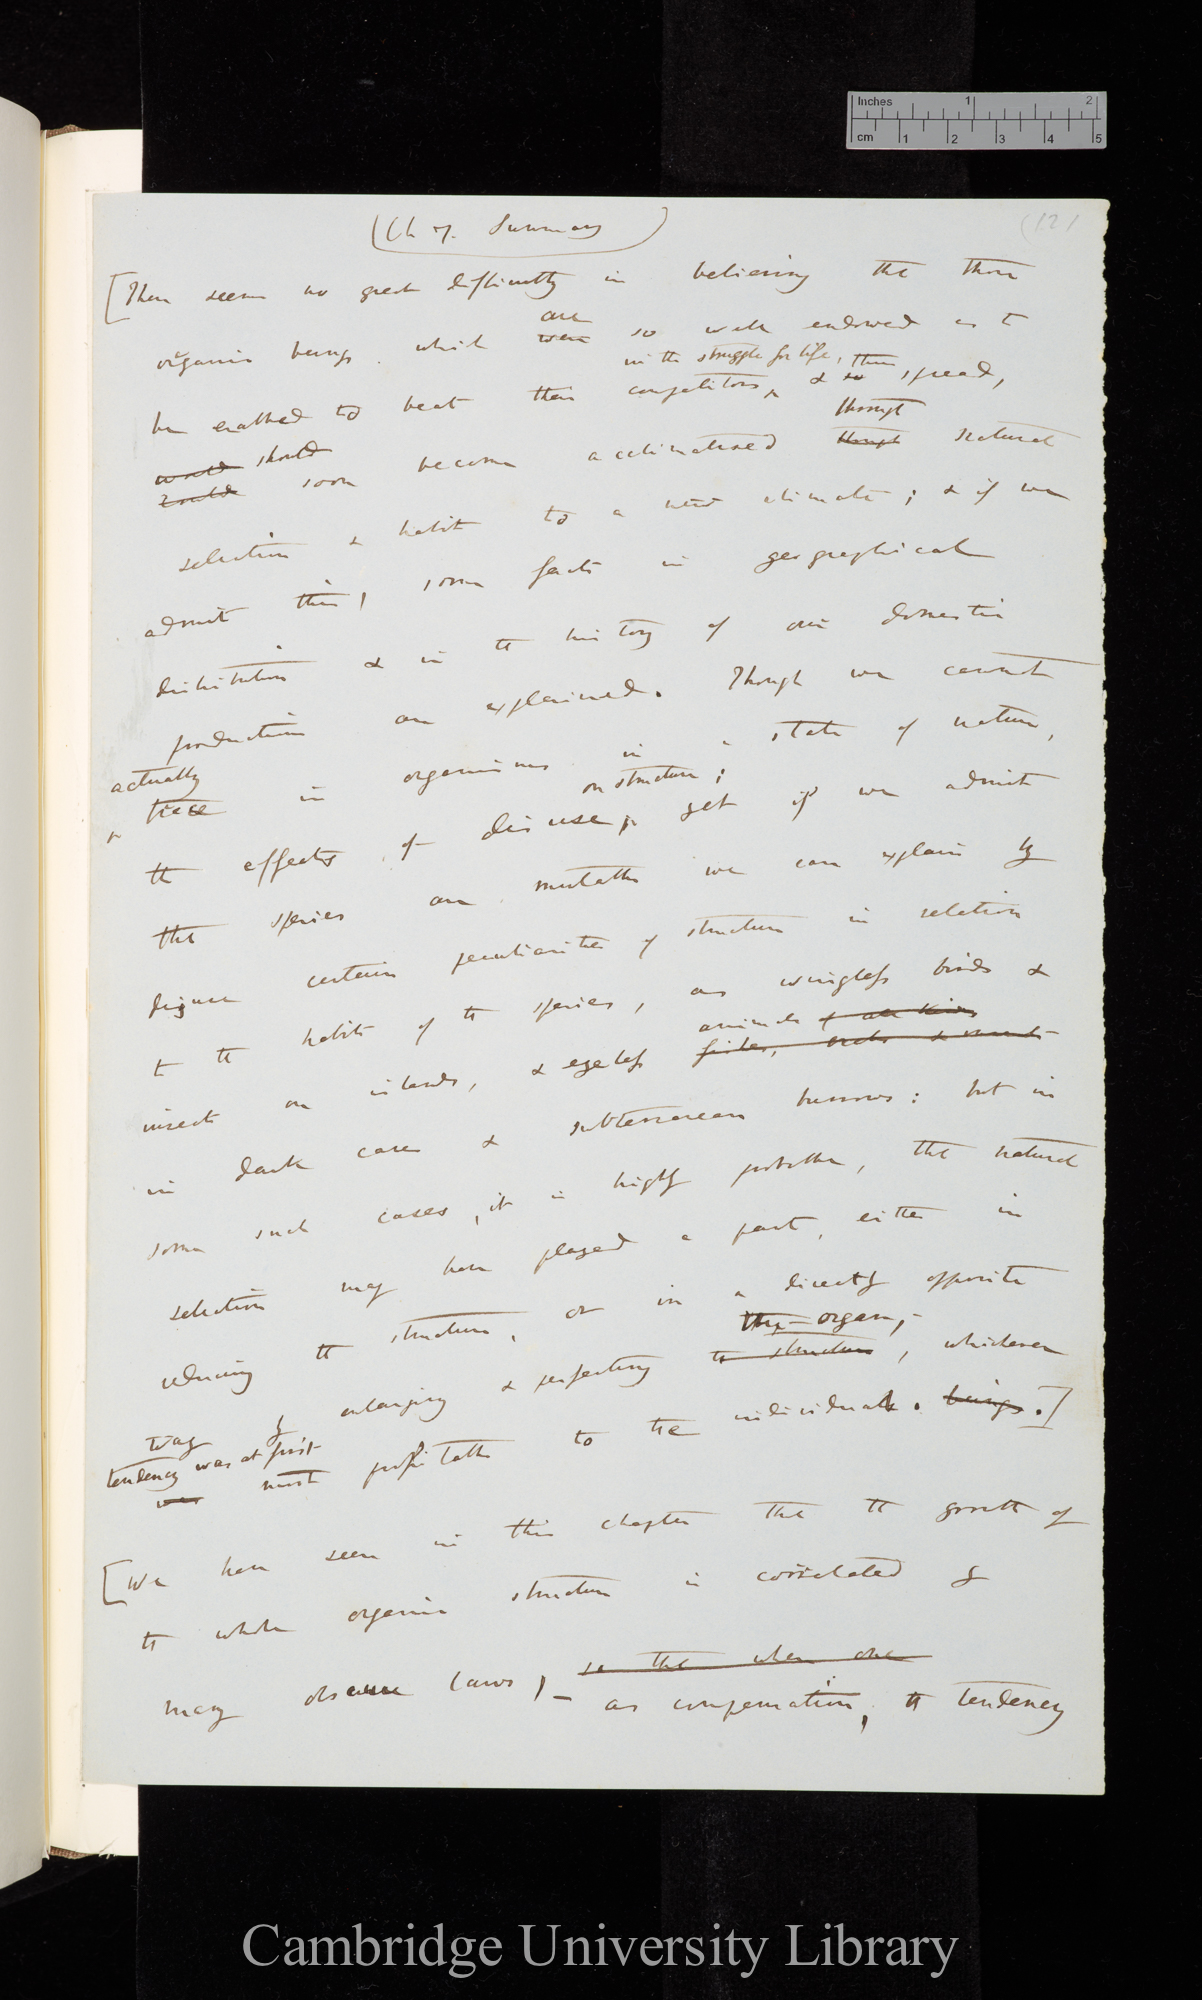 Inches 1 2
cm 1 2 3 4 5
(Ch 7. Summary)
(121
[There seems no great difficulty in believing that those
organic beings which were are so well endowed as to
be enabled to beat their competitors, in the struggle for life, & so thus spread,
would should
could soon become acclimatised though through natural
selection & habit to a new climate; & if we
admit this, some facts in geographical
distribution & in the history of our domestic
productions are explained. Though we cannot
actually
trace in organisms in a state of nature,
the effects of disuse on structure; yet if we admit
that species are mutable we can explain by
disuse certain peculiarities of structure in relation
to the habits of the species, as wingless birds &
insects on islands, & eyeless animals of all kinds
in dark caves & subterranean burrows: but in
some such cases, it is highly probable, that natural
selection may have played a part, either in
reducing the structure, or in a directly opposite
way by enlarging & perfecting the structure the organ, whichever
tendency was at first
was most profitable to the individuals. beings.]
[We have seen in this chapter that the growth of
the whole organic structure is correlated by
many obscure laws, – so that when one
as compensation, the tendency
Cambridge University Library